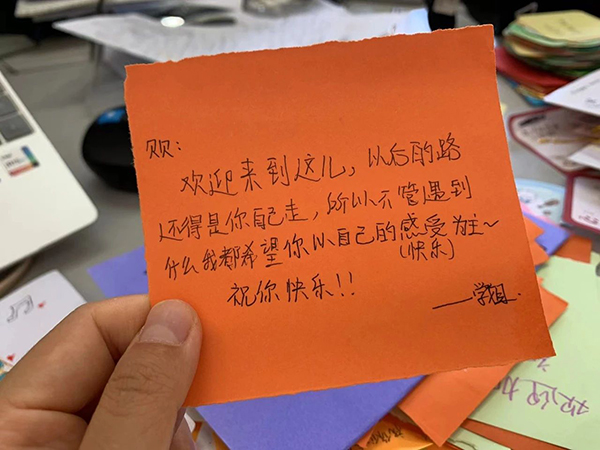 贝贝：
欢迎来到这儿，以后的路
还得是你自己走，所以不管遇到
什么我都希望你以自己的感受为主~
(快乐)
祝你快乐!!
——学姐.
欢迎加